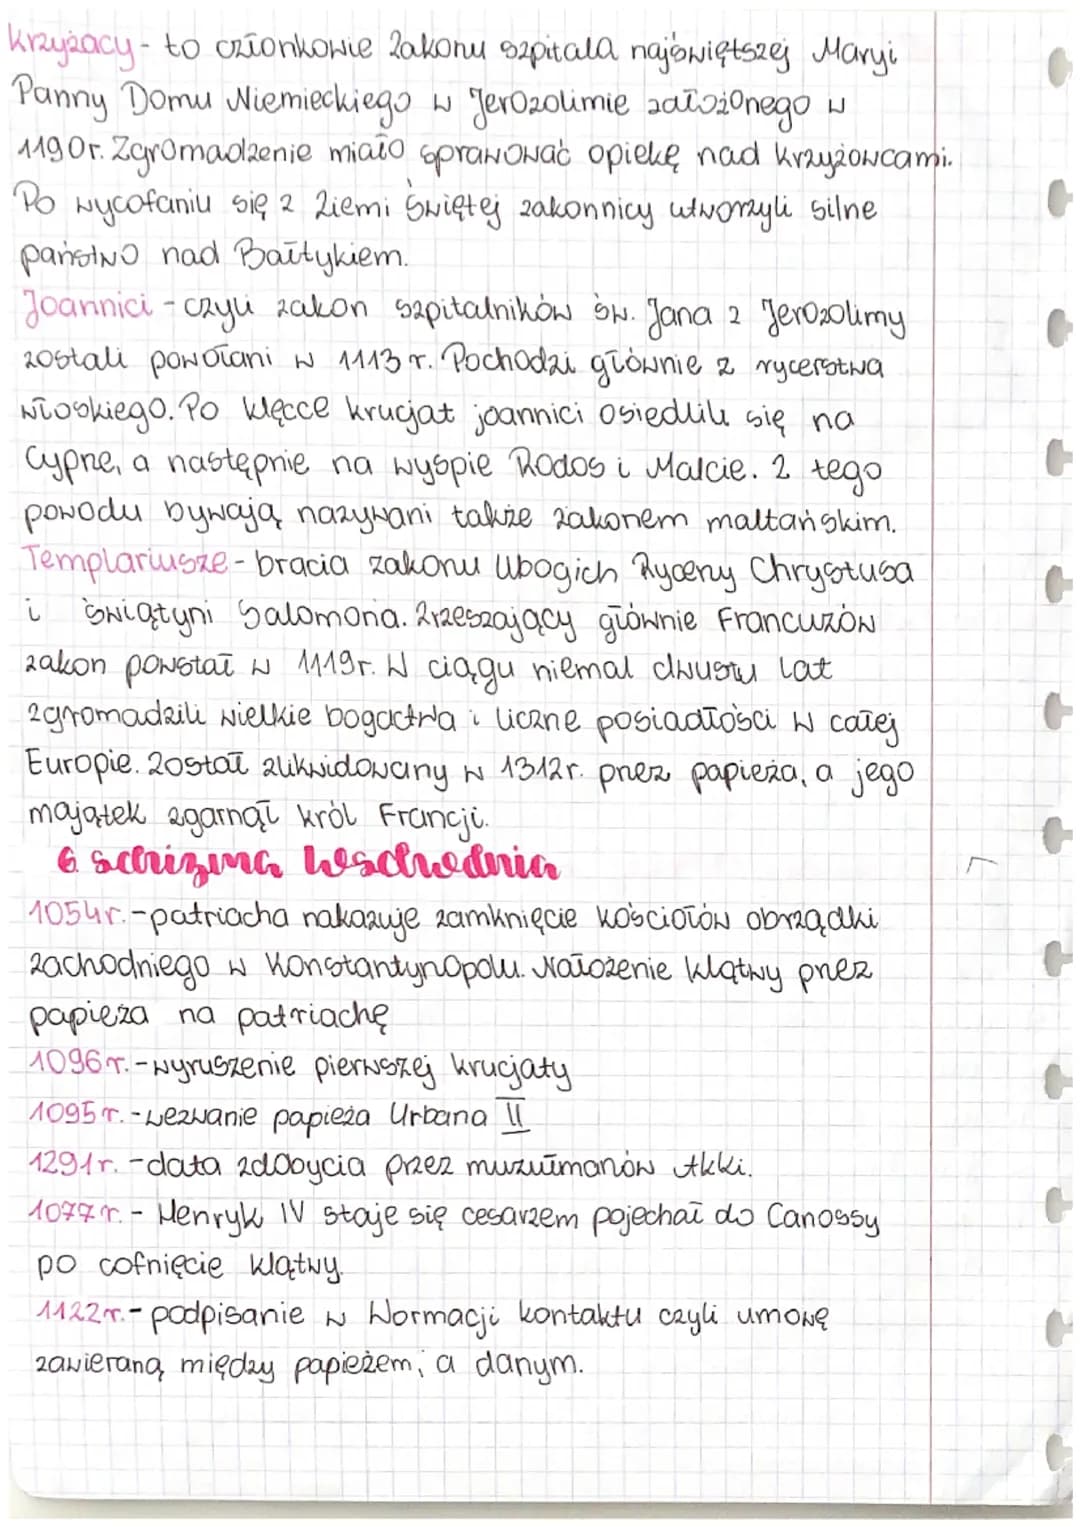 Krzyżacy - to członkowie Zakonu szpitala najświętszej Maryi
Panny Domu Niemieckiego w Jerozolimie założonego w
1190r. Zgromadzenie miało sprawować opiekę nad krzyżowcami.
Po wycofaniu się z Ziemi Świętej zakonnicy utworzyli silne
państwo nad Bałtykiem.
Joannici - czyli zakon szpitalników św. Jana z Jerozolimy
zostali powołani w 1113 r. Pochodzi głównie z rycerstwa
włoskiego. Po klęcce krucjat joannici osiedlili się na
Cyprze, a następnie na wyspie Rodos i Malcie. Z tego
powodu bywają nazywani także zakonem maltańskim.
Templariusze - bracia zakonu Ubogich Rycerzy Chrystusa
i świątyni Salomona. Zrzeszający głównie Francuzów
zakon powstał w 1119r. W ciągu niemal dwustu lat
zgromadzili wielkie bogactwa i liczne posiadłości w całej
Europie. Został zlikwidowany w 1312r. przez papieża, a jego
majątek zgarnął król Francji.
6. Schizma Wschodnia
1054r. - patriacha nakazuje zamknięcie kościołów obrządki
zachodniego w Konstantynopolu. Nałożenie klątwy przez
papieża na patriachę
1096r. - wyruszenie pierwszej krucjaty
1095r. - wezwanie papieża Urbana II
1291r. - data zdobycia przez muzułmanów Akki.
1077r. - Henryk IV staje się cesarzem pojechał do Canossy
po cofnięcie klątwy.
1122r. - podpisanie w Wormacji kontaktu czyli umowę
zawieraną między papieżem, a danym.